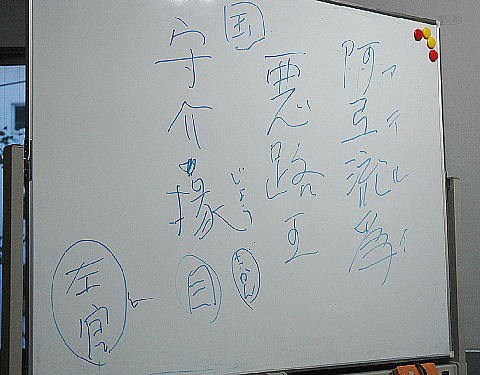 阿弖流為
アテルイ
悪路王
国
守介掾目
じょう
さかん
左官